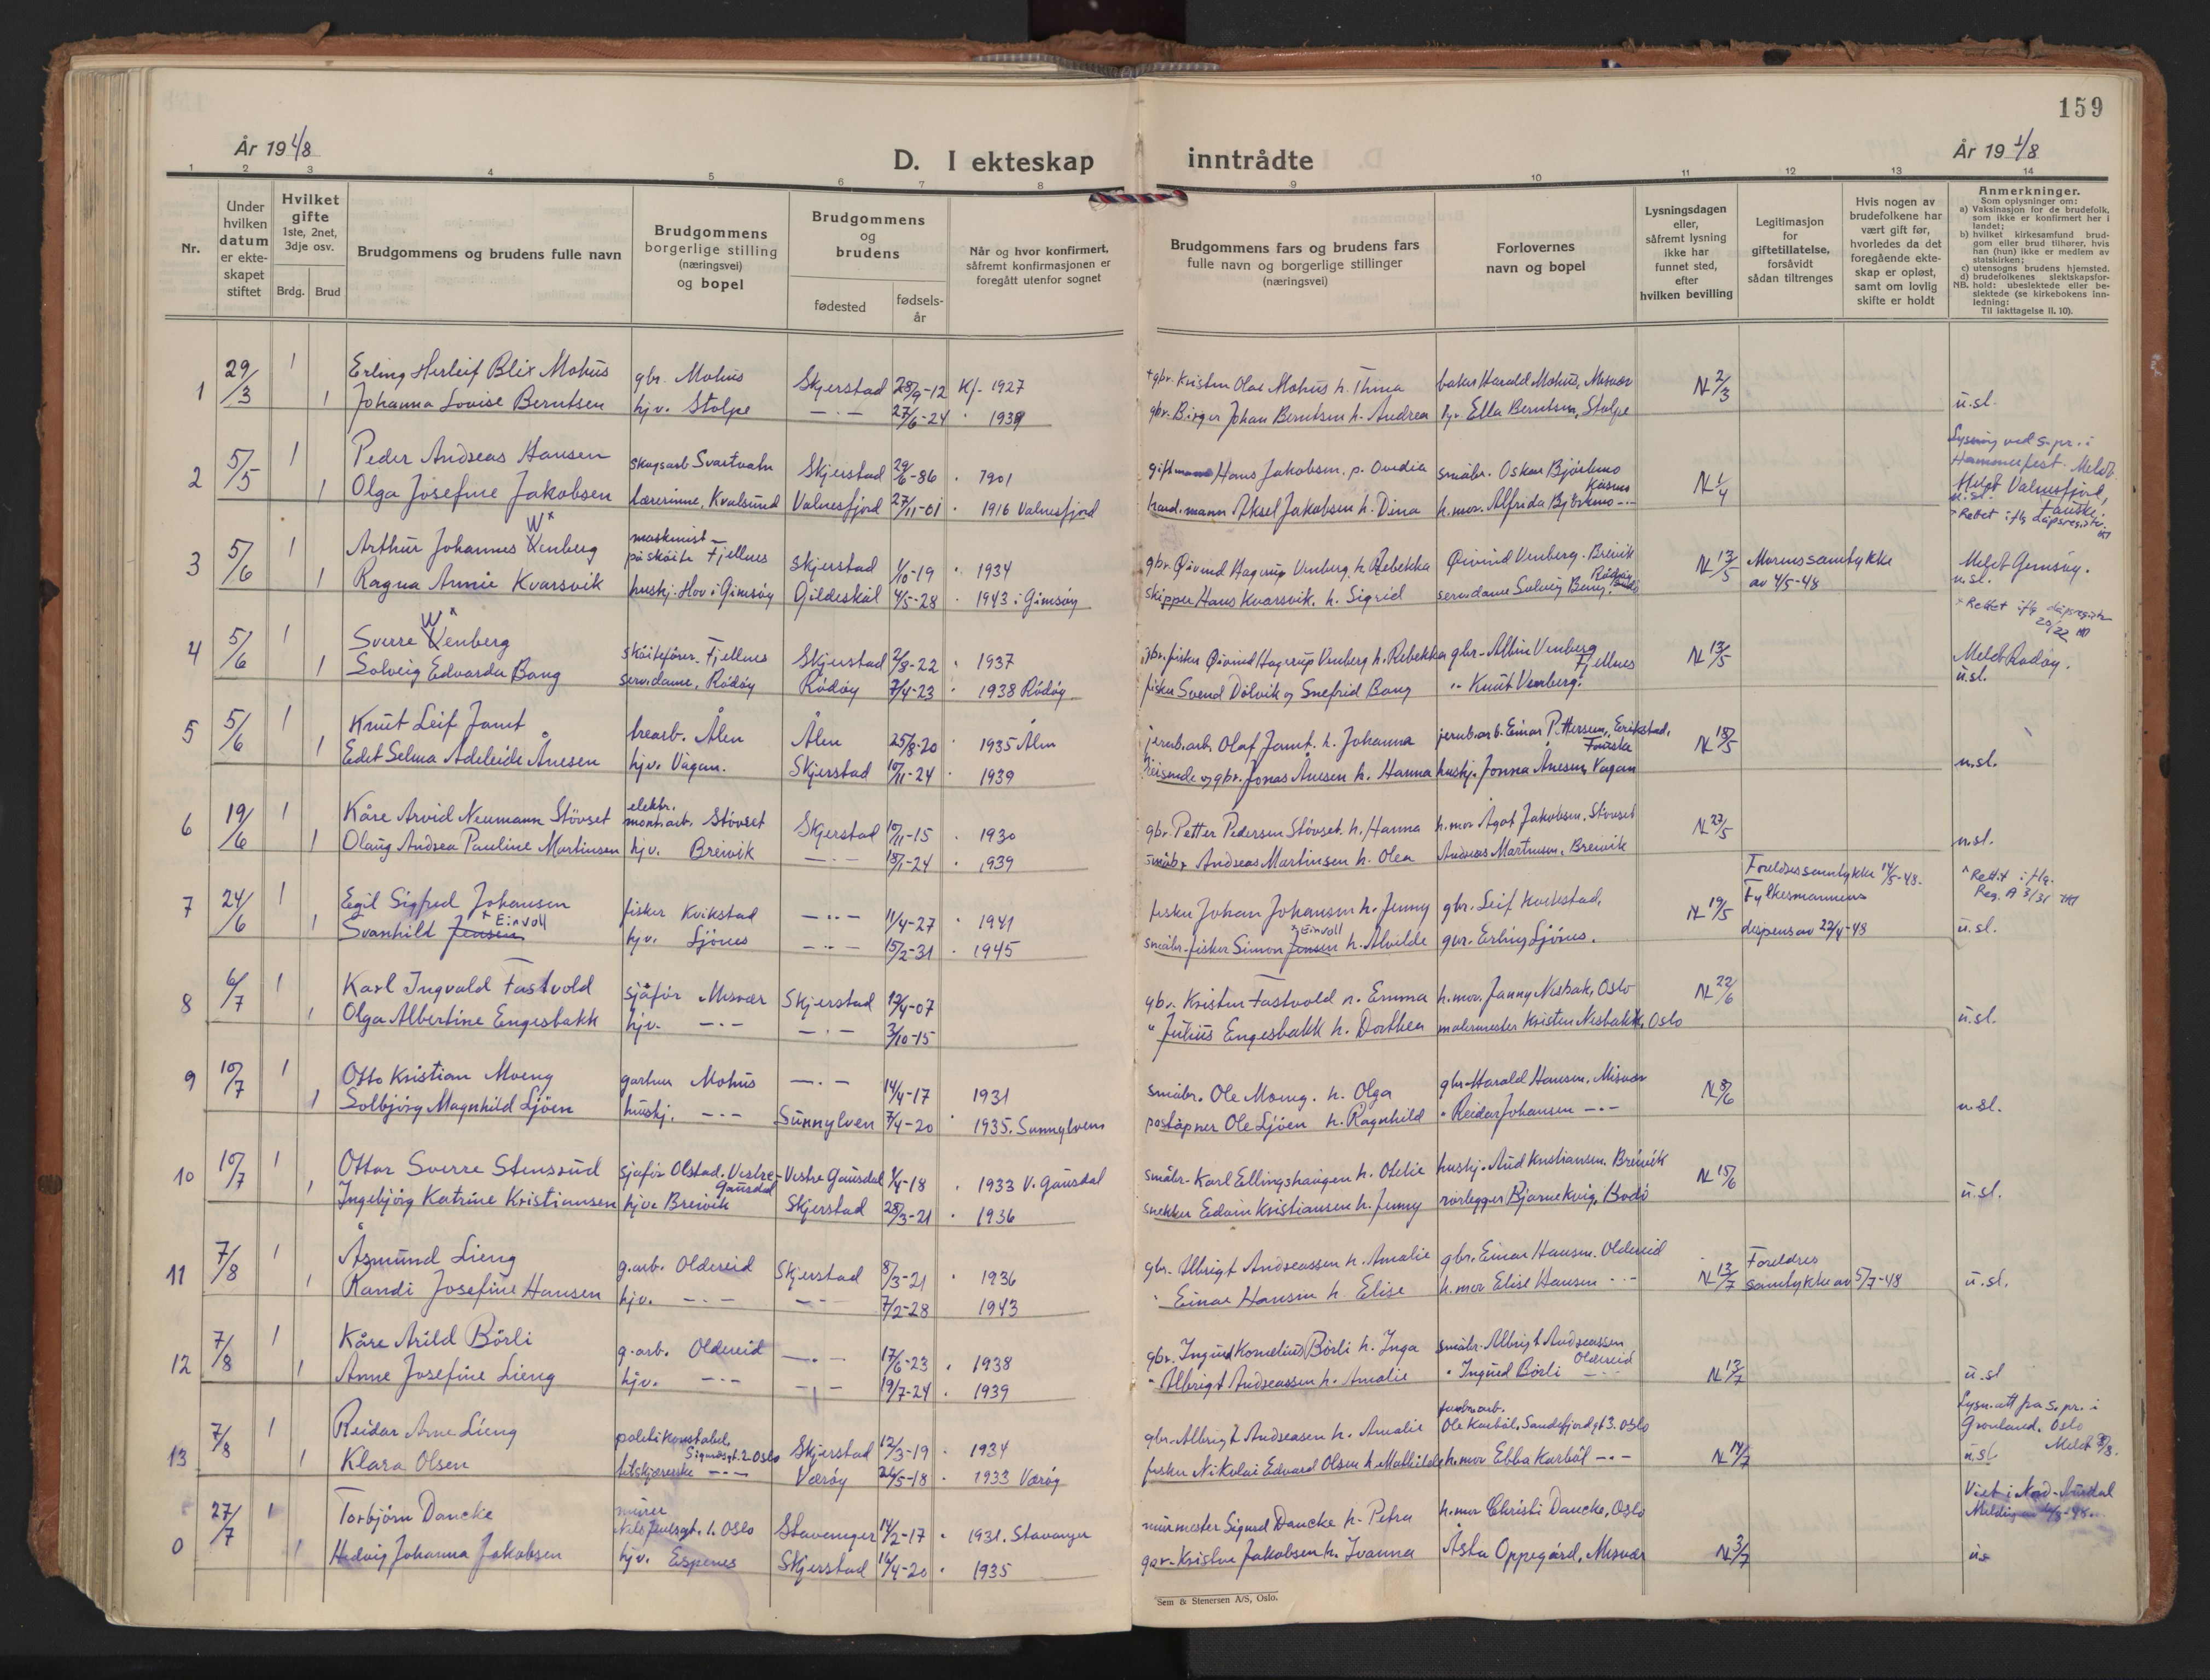 159
År 1948
D. I ekteskap inntrådte
År 1948
1 2 3 4 5 6 7 8 9 10 11 12 13 14
Nr.
Under hvilken datum er ekteskapet stiftet
Hvilket gifte 1ste, 2net, 3dje osv.
Brdg. Brud
Brudgommens og brudens fulle navn
Brudgommens borgerlige stilling (næringsvei) og bopel
Brudgommens og brudens
fødested
fødselsår
Når og hvor konfirmert, såfremt konfirmasjonen er foregått utenfor sognet
Brudgommens fars og brudens fars fulle navn og borgerlige stillinger (næringsvei)
Forlovernes navn og bopel
Lysningsdagen eller, såfremt lysning ikke har funnet sted, efter hvilken bevilling
Legitimasjon for giftetillatelse, forsåvidt sådan tiltrenges
Hvis nogen av brudefolkene har vært gift før, hvorledes da det foregående ekteskap er opløst, samt om lovlig skifte er holdt
Anmerkninger.
Som oplysninger om:
a) Vaksinasjon for de brudefolk, som ikke er konfirmert her i landet;
b) hvilket kirkesamfund brudgom eller brud tilhører, hvis han (hun) ikke er medlem av statskirken;
c) utensogns brudens hjemsted.
d) brudefolkenes slektskapsforhold: ubeslektede eller beslektede (se kirkebokens innledning:
NB.
Til iakttagelse II. 10).
1 29/3 1 Erling Herleif Blix Mohus gbr. Mohus Skjerstad 28/9-12 Kf. 1927 + gbr. Kristen Olai Mohus h. Thina baker Harald Mohus, Misvær N 2/3
1 Johanna Lovise Berntsen hjv. Stolpe —·— 27/6-24 " 1939 gbr. Birger Johan Berntsen h. Andrea hjv. Ella Berntsen, Stolpe u.sl.
2 5/5 1 Peder Andreas Hansen skogsarb. Svartvatn Skjerstad 29/6-86 " 1901 Hans Jakobsen p. Ovedia småbr. Oskar Bjørkmo Kosmo N 1/4 Lysning ved s.pr. i Hammerfest. Meldt
1 Olga Josefine Jakobsen lærerinne, Kvalsund Valnesfjord 27/11-01 " 1916 Valnesfjord hand.mann Aksel Jakobsen h. Dina h.mor. Alfrida Bjørkmo —·— Meldt Valnesfjord, Fauske. u.sl.
x Rettet iflg. dåpsregister
3 5/6 1 Arthur Johannes Wenberg maskinist på skøite Fjellnes Skjerstad 1/10-19 " 1934 gbr. Øivind Hagerup Venberg h. Rebekka Øivind Venberg. Breivik N 13/5 Morens samtykke av 4/5-48 Meldt Gimsøy.
1 Ragna Annie Kvarsvik hushj. Hov i Gimsøy Gildeskål 4/5-28 " 1943 i Gimsøy skipper Hans Kvarsvik. h. Sigrid serv.dame Solveig Bang, Rødøy u.sl.
x Rettet iflg dåpsregister 20/22
4 5/6 1 Sverre Wenberg skøitefører. Fjellnes Skjerstad 2/8-22 " 1937 gbr. fisker Øivind Hagerup Venberg h. Rebekka gbr. Albin Venberg Fjellnes N 13/5 Meldt Rødøy.
1 Solveig Edvarda Bang serv.dame, Rødøy Rødøy 7/4-23 " 1938 Rødøy fisker Svend Dølvik og Snefrid Bang " Knut Venberg. u.sl.
5 5/6 1 Knut Leif Jamt trearb. Ålen Ålen 25/8-20 " 1935 Ålen jernb.arb. Olaf Jamt. h. Johanna jernb.arb. Einar Pettersen, Erikstad, Fauske N 18/5
1 Edit Selma Adeleide Ånesen hjv. Vågan. Skjerstad 10/11-24 " 1939 reisende og gbr. Jonas Ånesen h. Hanna hushj. Jonna Ånesen, Vågan u.sl.
6 19/6 1 Kåre Arvid Neumann Støvset elektr. mont.arb. Støvset Skjerstad 10/11-15 " 1930 gbr. Petter Pedersen Støvset. h. Hanna h.mor Ågot Jakobsen, Støvset N 27/5
1 Olaug Andrea Pauline Martinsen hjv. Breivik —·— 18/1-24 " 1939 småbr Andreas Martinsen h. Olea Andreas Martinsen, Breivik u.sl.
7 24/6 1 Egil Sigfred Johansen fisker Kvikstad —·— 11/4-27 " 1941 fisker Johan Johansen h. Jenny gbr. Leif Kvikstad, N 19/5 Foreldres samtykke 14/5-48. Fylkesmannens dispens av 22/4-48 x Rettet iflg. Reg. A 3/31
1 Svanhild Jensen x Einvoll hjv. Ljønes —·— 15/2-31 " 1945 småbr.-fisker Simon Jensen x Einvoll h. Alvilde gbr. Erling Ljønes. u.sl.
8 6/7 1 Karl Ingvald Fastvold sjåfør Misvær Skjerstad 12/4-07 gbr. Kristen Fastvold h. Emma h.mor. Janny Nesbak, Oslo N 22/6
1 Olga Albertine Engesbakk hjv. —·— —·— 3/10-15 " Julius Engesbakk h. Dorthea malermester Kristen Nesbakk, Oslo u.sl.
9 10/7 1 Otto Kristian Moeng gartner Mohus —·— 14/4-17 1931 småbr. Ole Moeng. h. Olga gbr. Harald Hansen, Misvær N 8/6
1 Solbjørg Magnhild Ljøen hushj. —·— Sunnylven 7/4-20 " 1935. Sunnylven poståpner Ole Ljøen h. Ragnhild " Reidar Johansen —·— u.sl.
10 10/7 1 Ottar Sverre Stensrud sjåfør Olstad. Vestre Gausdal Vestre Gausdal 4/4-18 " 1933 V. Gausdal småbr. Karl Ellingshaugen h. Oletie hushj. Aud Kristiansen. Breivik N 15/6
1 Ingebjørg Katrine Kristiansen hjv. Breivik Skjerstad 28/3-21 " 1936 snekker Edvin Kristiansen h. Jenny rørlegger Bjarne Kvig, Bodø u.sl.
11 7/8 1 Åsmund Lieng g.arb. Oldereid Skjerstad 8/3-21 " 1936 gbr. Albrigt Andreassen h. Amalie gbr. Einar Hansen. Oldereid N 13/7 Foreldres samtykke av 5/7-48
1 Randi Josefine Hansen hjv. —·— —·— 7/2-28 1943 " Einar Hansen h. Elise h.mor Elise Hansen —·— u.sl.
12 7/8 1 Kåre Arild Børli g.arb. Oldereid —·— 17/6-23 " 1938 gbr. Ingvard Kornelius Børli h. Inga småbr. Albrigt Andreassen Oldereid N 13/7
1 Anne Josefine Lieng hjv. —·— —·— 19/7-24 " 1939 " Albrigt Andreassen h. Amalie " Ingvard Børli —·— u.sl
13 7/8 1 Reidar Arne Lieng politikonstabel. Sigurdsgt. 2 Oslo Skjerstad 12/3-19 " 1934 gbr. Albrigt Andreasen h. Amalie Ole Karbøl. Sandefjordgt 3. Oslo N 14/7 Lysn.att fra s.pr. i Grønland, Oslo
1 Klara Olsen tilskjærerske —·— Værøy 26/5-18 " 1933 Værøy fisker Nikolai Edvard Olsen h. Mathilde h.mor Ebba Karbøl —·— u.sl. Meldt 8/8.
0 27/7 1 Torbjørn Dancke murer Nils Juelsgt. 1. Oslo Stavanger 14/2-17 " 1931. Stavanger murmester Sigurd Dancke h. Petra h.mor Christi Dancke, Oslo N 3/7 Viet i Nord-Aurdal
1 Hedvig Johanna Jakobsen hjv. Espenes Skjerstad 16/4-20 " 1935 gbr. Kristen Jakobsen h. Ivanna Åsta Oppegård, Misvær us
Sem & Stenersen A/S, Oslo.